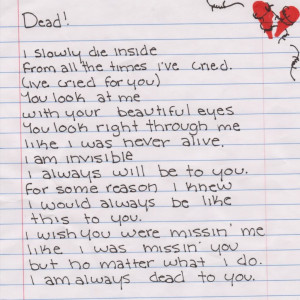 Dead!
I slowly die inside
From all the times i've cried.
(ive cried for you)
You look at me
with your beautiful eyes
You look right through me
like I was never alive.
I am invisible
I always will be to you.
For some reason I knew
I would always be like
this to you.
I wish you were missin' me
like I was missin' you
but no matter what I do.
I am always dead to you.